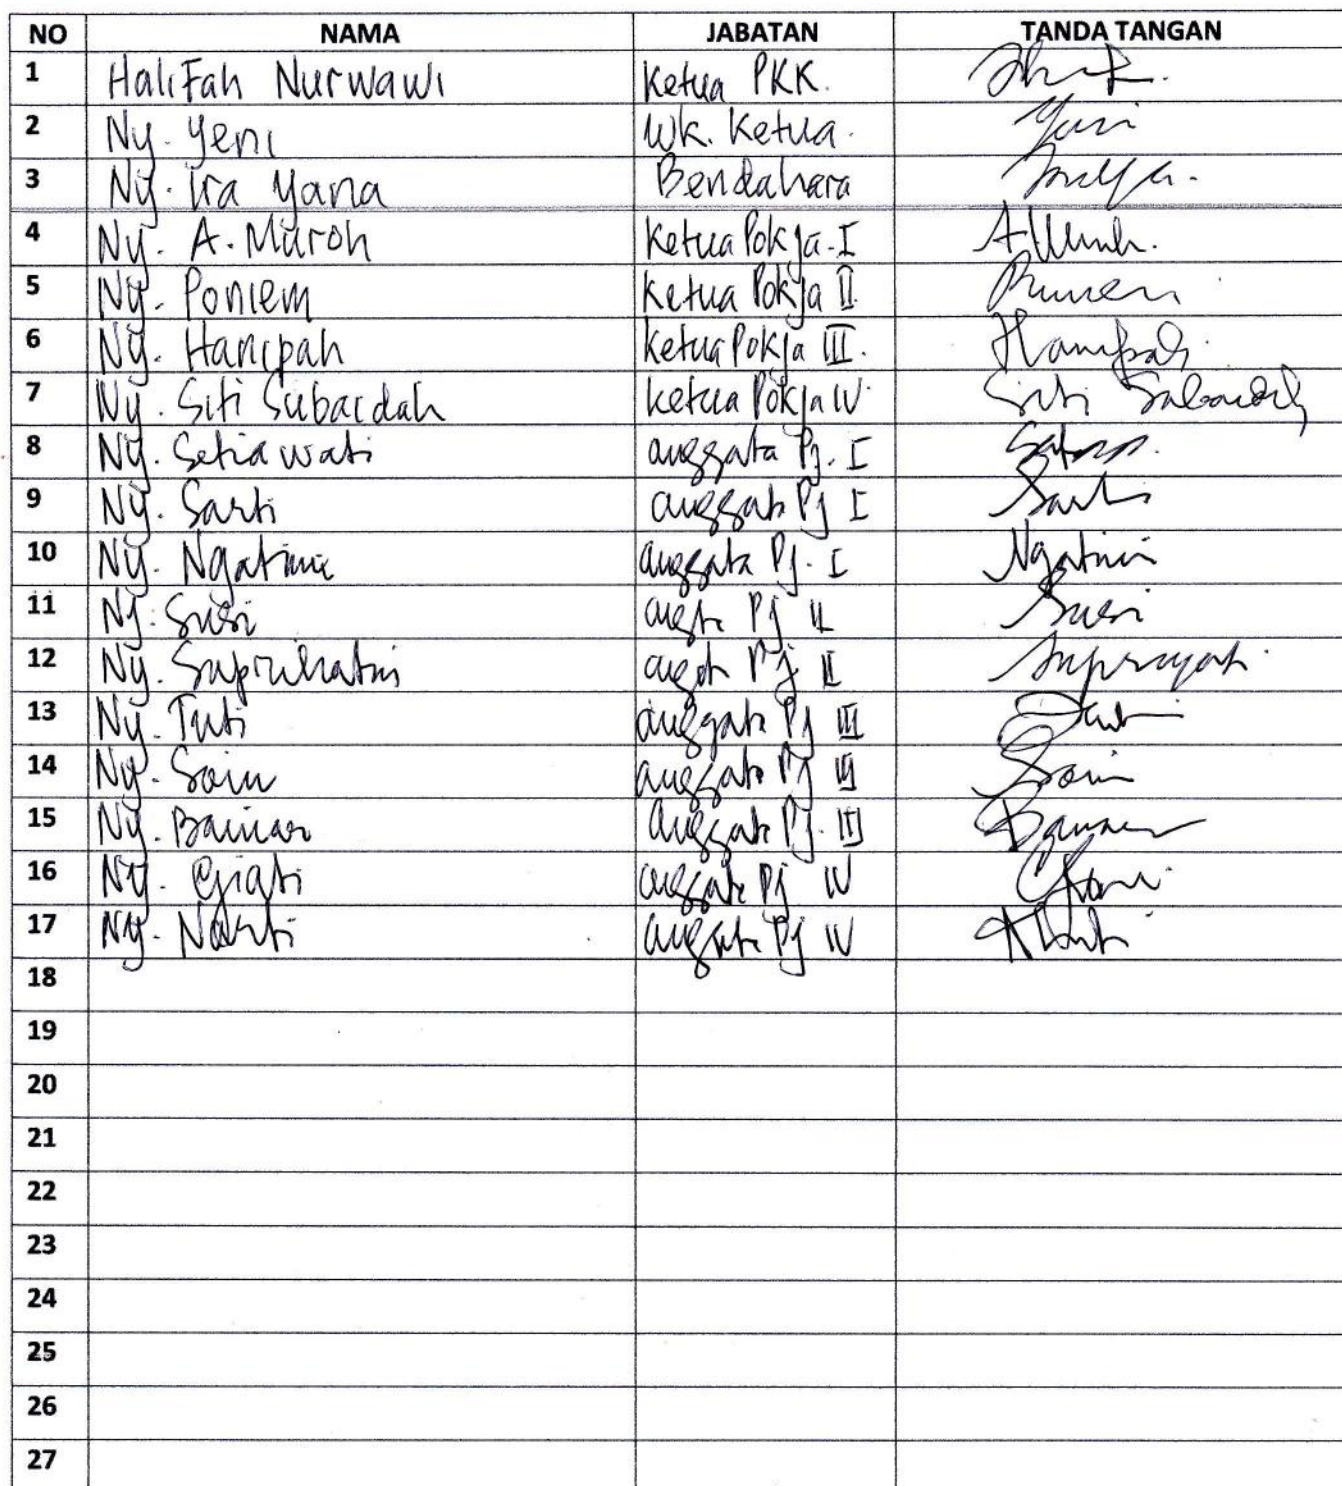 NO NAMA JABATAN TANDA TANGAN
1 Halifah Nurwawi Ketua PKK.
2 Ny. Yeni Wk. Ketua. Yeni
3 Ny. Ira Yana Bendahara
4 Ny. A. Muroh Ketua Pokja. I
5 Ny. Poniem Ketua Pokja II
6 Ny. Hanipah Ketua Pokja III. Hanipah
7 Ny. Siti Subaidah Ketua Pokja IV Siti Subaidah
8 Ny. Setiawati anggota Pj. I
9 Ny. Sarti anggota Pj I Sarti
10 Ny. Ngatini anggota Pj. I Ngatini
11 Ny. Susi Pj II Susi
12 Ny. Suprihatin Pj II
13 Ny. Tuti anggota Pj III Tuti
14 Ny. anggota Pj III
15 Ny. Bainar anggota Pj. III
16 Ny. anggota Pj IV
17 Ny. Narti anggota Pj IV
18
19
20
21
22
23
24
25
26
27